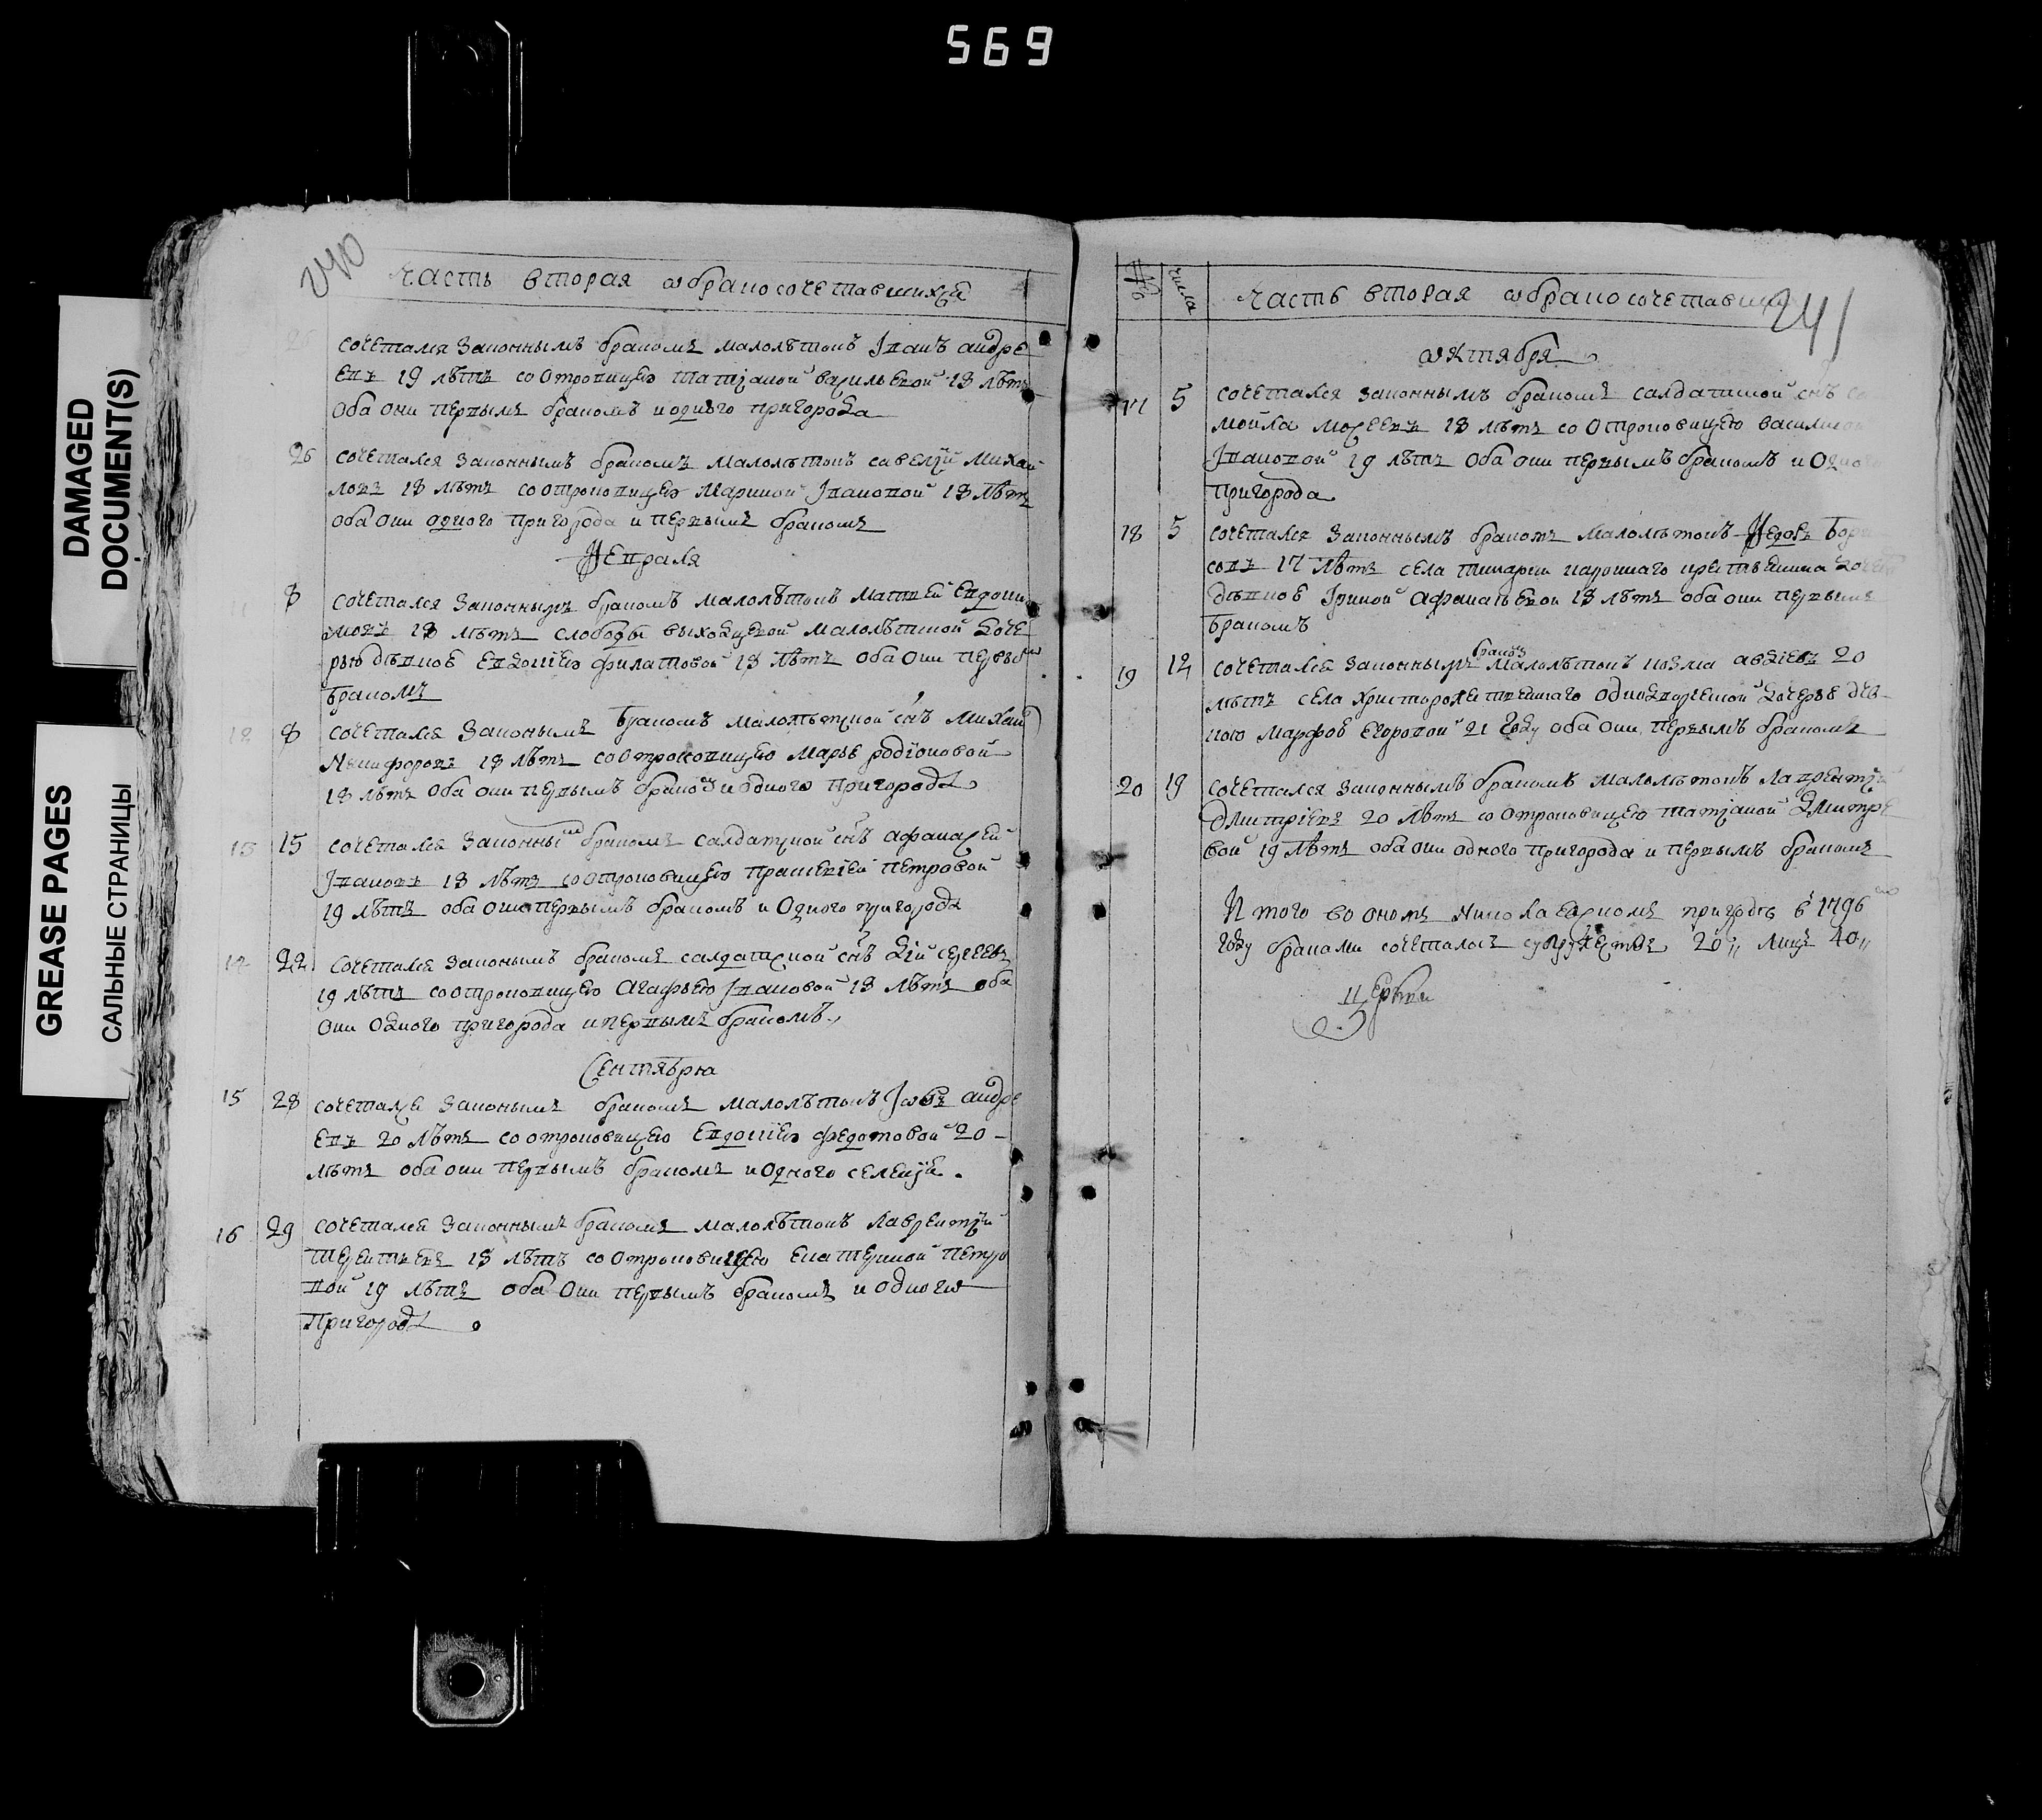 569
DAMAGED
DOCUMENT(S)
GREASE PAGES
САЛЬНЫЕ СТРАНИЦЫ
240
Часть вторая ѡ бракосочетавшихся
26
сочетался законнымъ бракомъ малолѣтокъ Іванъ андре
евъ 19 лѣтъ со отроковицею татіаной васильевой 18 лѣтъ
оба они первымъ бракомъ и одного пригорода
26 сочетался законнымъ бракомъ малолѣтокъ савелій михай
ловъ 18 лѣтъ со отроковицею Мариной Івановой 18 лѣтъ
оба они одного пригорода и первымъ бракомъ
Февраля
8 сочетался законнымъ бракомъ малолѣтокъ матвей евдоки
мовъ 18 лѣтъ слободы малолѣтной доче
рью дѣвкою евдокіею филатовой 18 лѣтъ оба они первы
бракомъ
12 8 сочетался законымъ бракомъ малолѣтной снъ Михаий
Никифоровъ 18 лѣтъ со отроковицею Марье родіоновой
18 лѣтъ оба они первымъ бракоъ и одного пригорода
13 15 сочетался законны бракомъ салдатской снъ афанасей
Івановъ 18 лѣтъ со отроковицею праскевіей петровой
19 лѣтъ оба они первымъ бракомъ и одного пригорода
22 сочетался законымъ бракомъ салдатской снъ сергеевъ
19 лѣтъ со отроковицею агафьею Івановой 18 лѣтъ оба
они одного пригорода и первымъ бракомъ
Сентября
15 28 сочетался законымъ бракомъ малолѣтокъ Іѡвъ андре
евъ 20 лѣтъ со отроковицею евдокіею федотовой 20
лѣтъ оба они первымъ бракомъ и одного селенія.
16 29 сочетался законнымъ бракомъ малолѣтокъ лаврентій
терентьевъ 18 лѣтъ со отроковицею екатериной петро
вой 19 лѣтъ оба они первымъ бракомъ и одного
пригорода
№ числа Часть вторая ѡ бракосочетавши
241
ѡктября
17 5 сочетался законнымъ бракомъ салдатской снъ са
мойла мосеевъ 18 лѣтъ со отроковицею василисой
Івановой 19 лѣтъ оба они первымъ бракомъ и одного
пригорода
18 5 сочетался законнымъ бракомъ малолѣтокъ Федоръ бори
совъ 17 лѣтъ села дочерью
дѣвкое Іриной афанасьевой 18 лѣтъ оба они первымъ
бракомъ
бракоъ
19 12 сочетался законнымъ малолѣтокъ козма авдіевъ 20
лѣтъ села христорожественскаго однодворческой дочерье дѣв
кою марфое егоровой 21 году оба они первымъ бракомъ
20 19 сочетался законнымъ бракомъ малолѣтокъ лаврентій
дмитріевъ 20 лѣтъ со отроковицею татіаной дмитрее
вой 19 лѣтъ оба они одного пригорода и первымъ бракомъ
Итого во ономъ пригородѣ в 1796
году браками сочеталось супружествъ 20,, лицъ 40,,